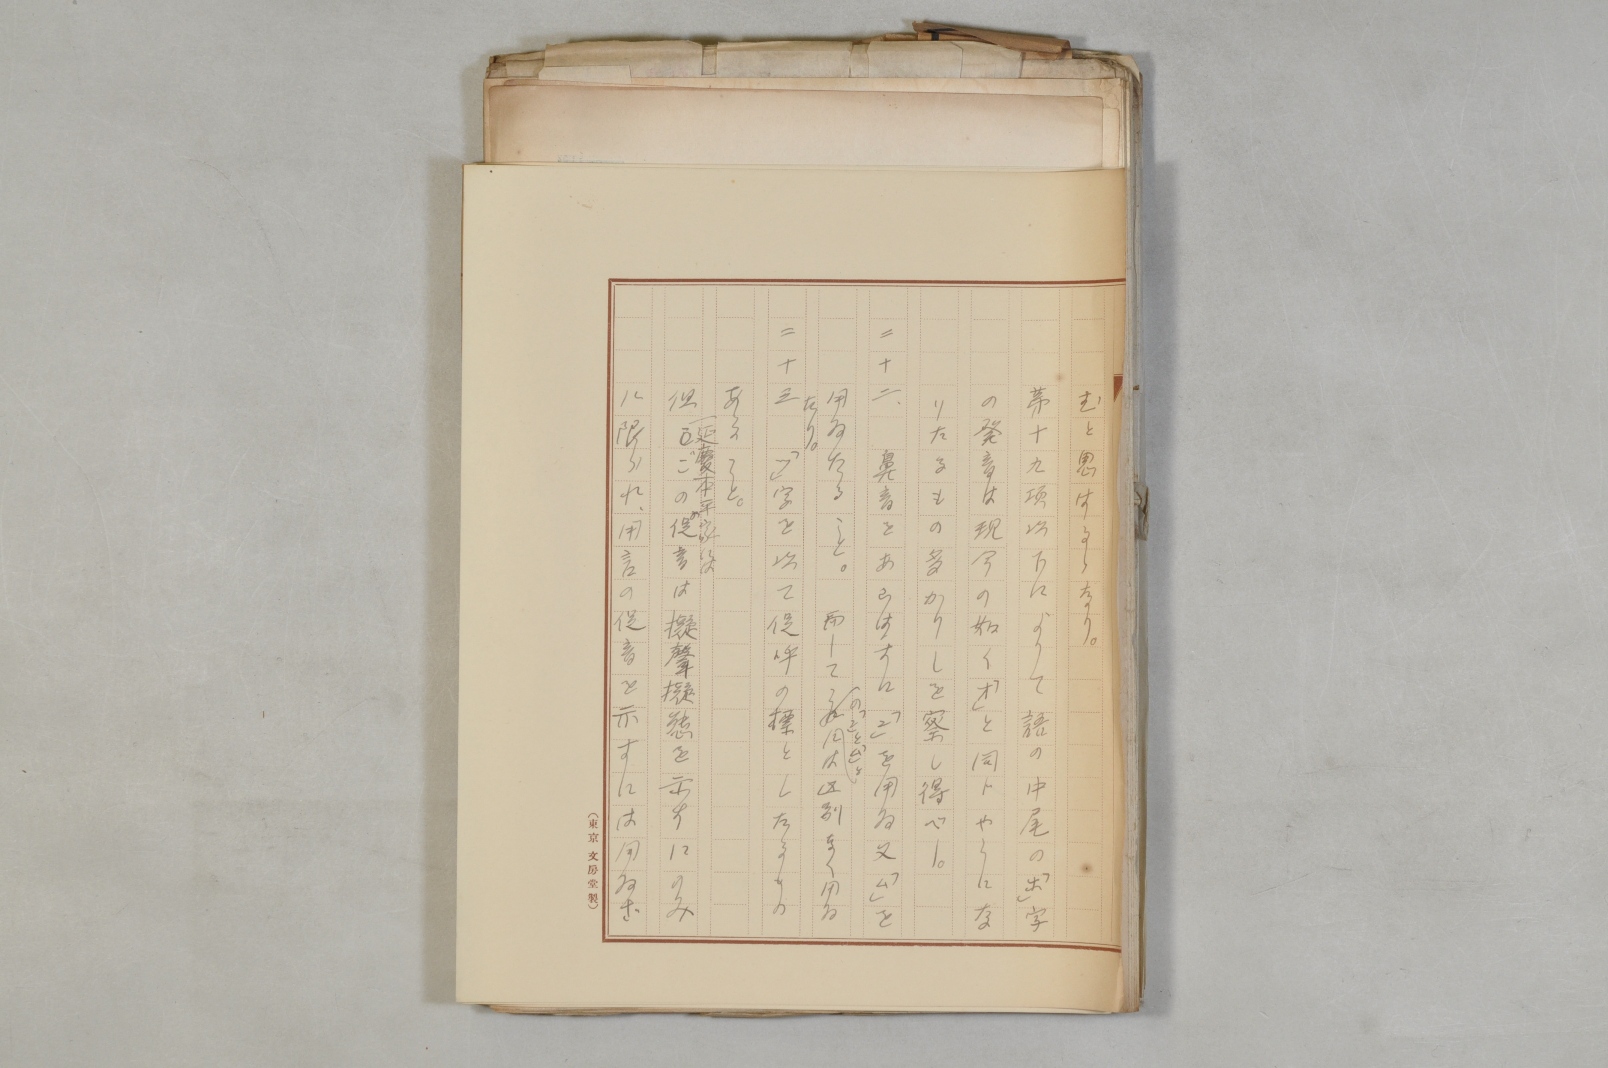 むと思はるゝなり。
第十九項以下によりて語の中尾の「ホ」字
の発音は現今の如く「オ」と同トやうにな
りたるもの多かりしを察し得べし。
二十二、鼻音をあらはすに「ン」を用ゐ又「ム」を
用ゐたること。而して
(の「ン」と「ム」と)
は区別なく用ゐ
たり。
二十三 「ツ」字を以て促呼の標としたるもの
あること。
但
「延慶本平家には
の促音は擬聲擬態を示すにのみ
に限られ、用言の促音を示すには用ゐず
(東京 文房堂製)